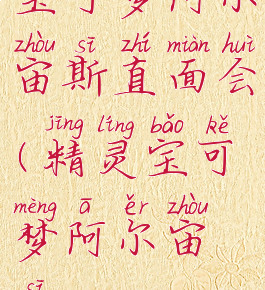 宝可梦阿尔
zhòu sī zhí miàn huì
宙斯直面会
jīng líng bǎo kě
(精灵宝可
mèng ā ěr zhòu
梦阿尔宙
sī